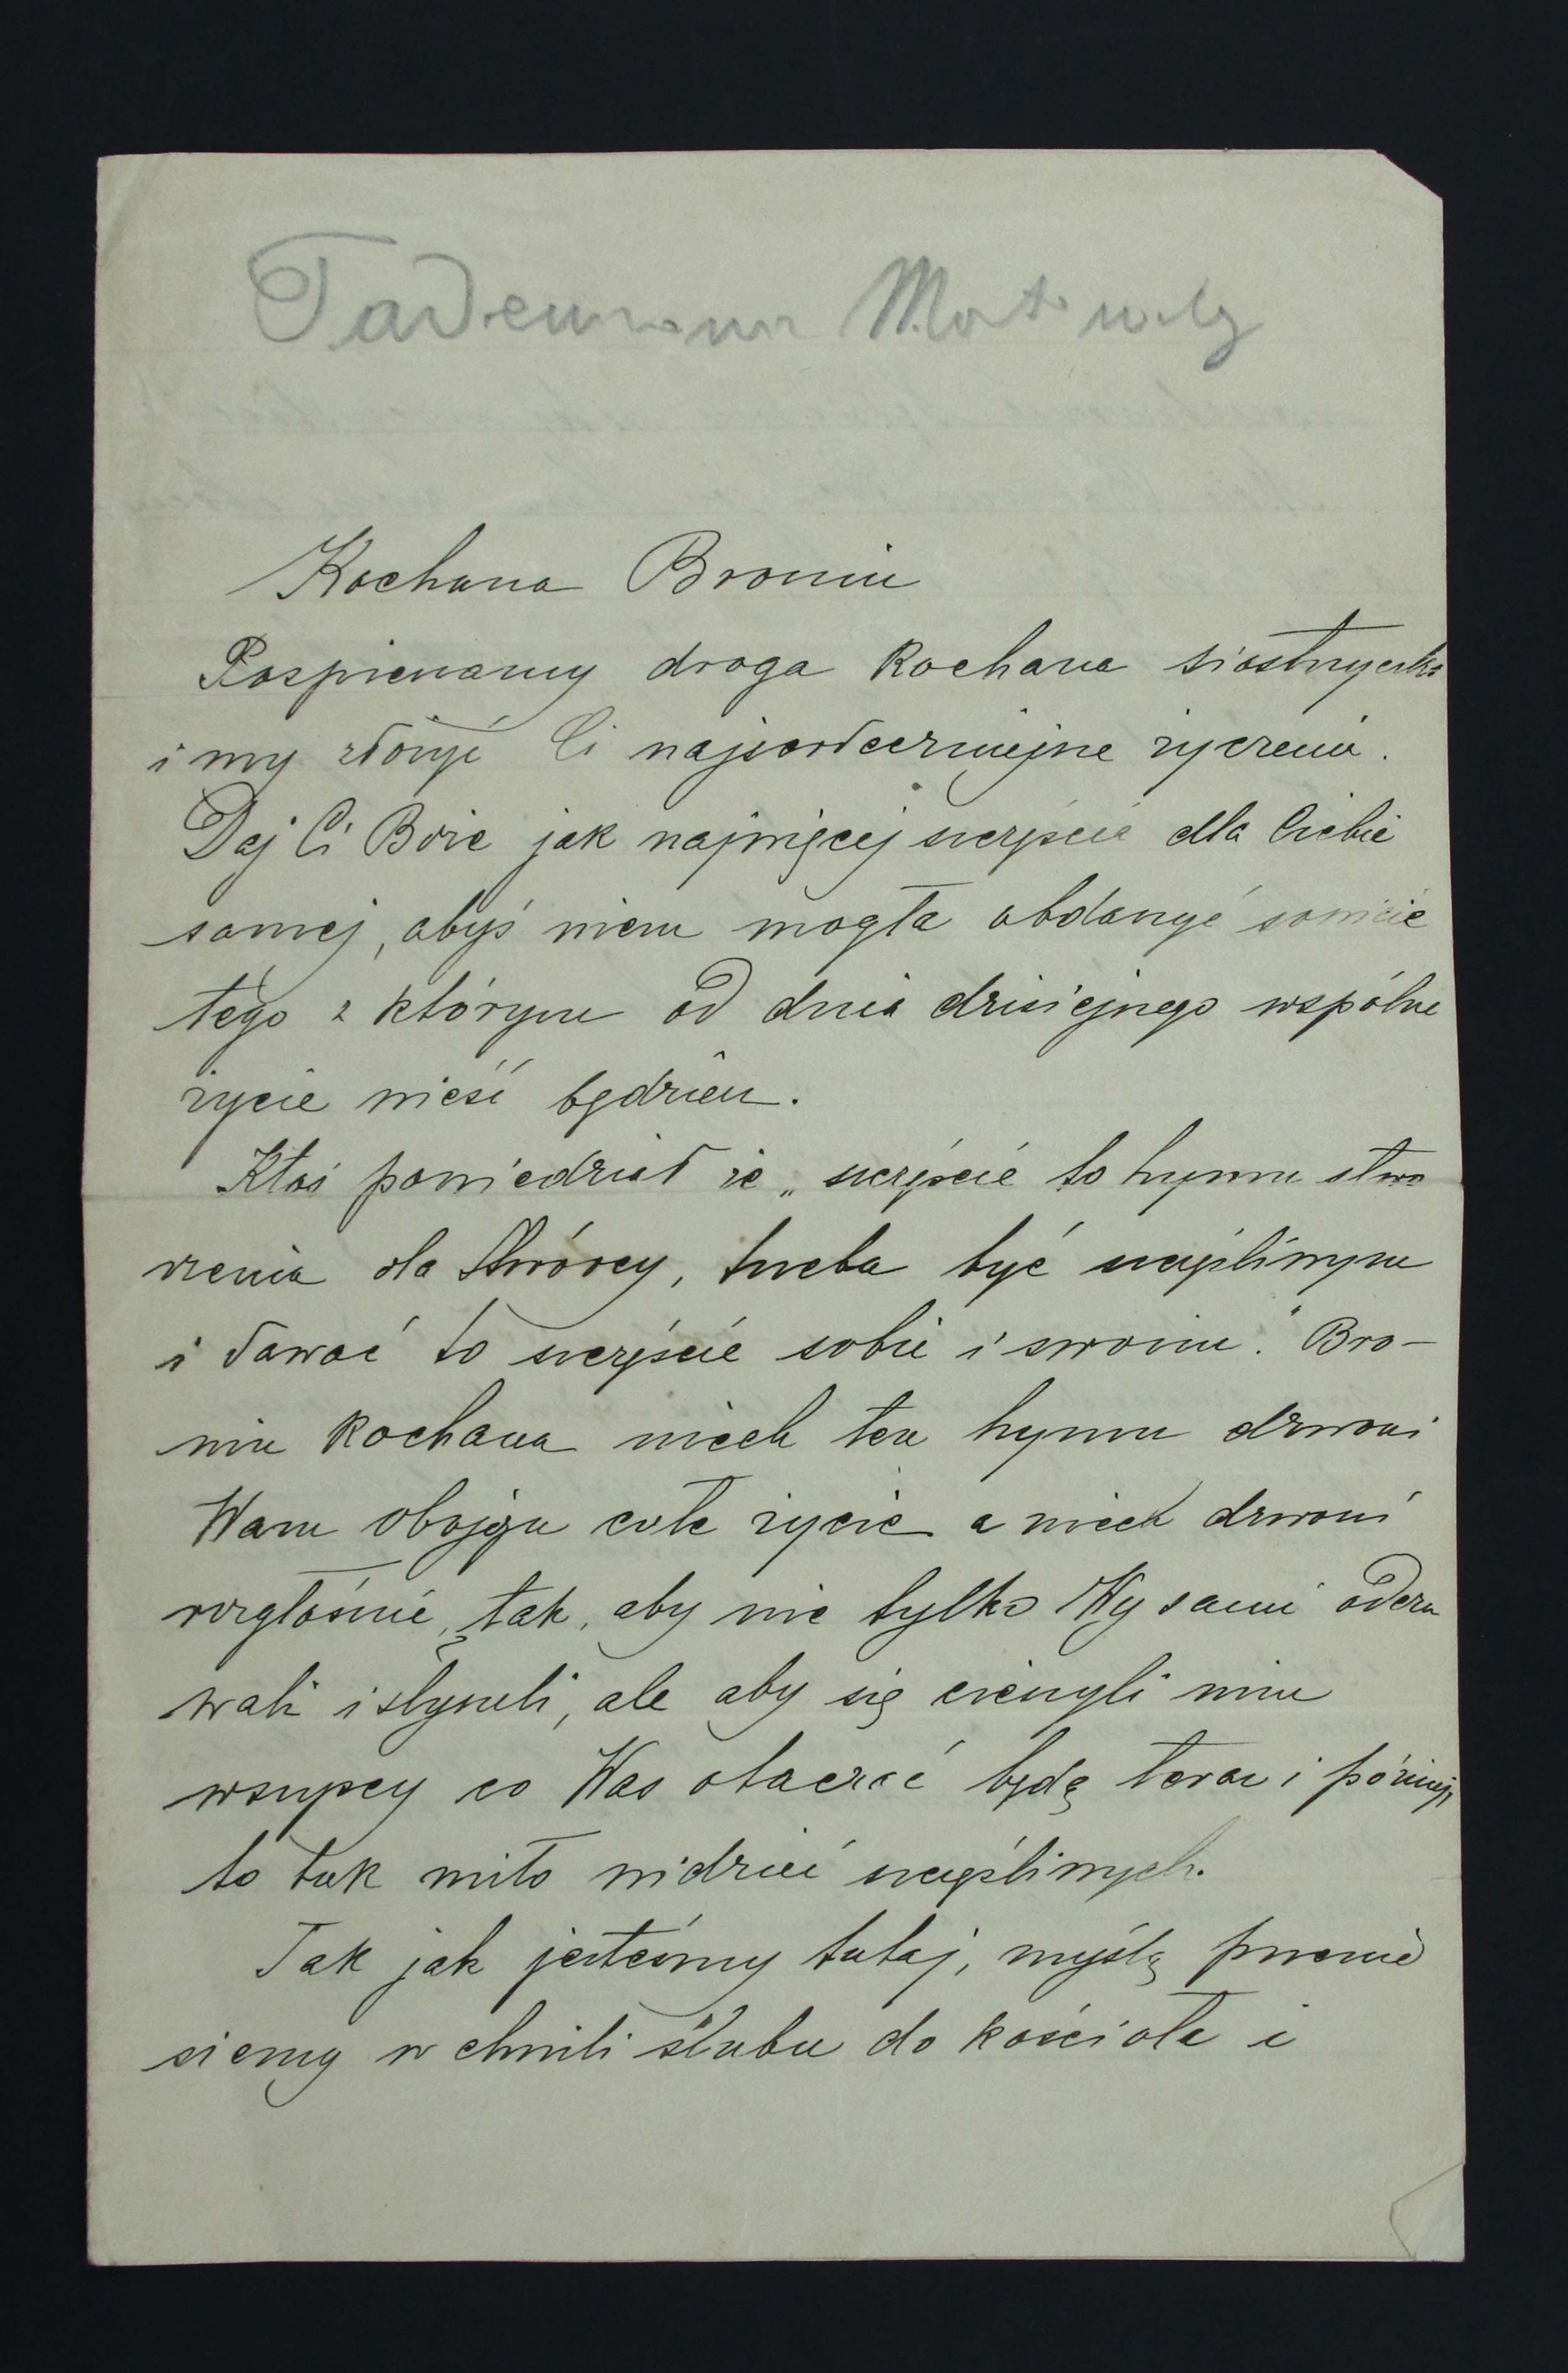 Kochana Broniu
Pospieszamy droga kochana siostrzyczko
i my złożyć Ci najserdeczniejsze życzenia.
Daj Ci Boże jak najwięcej szczęścia dla Ciebie
samej, abyś niem mogła obdarzyć sowicie
tego z którym od dnia dzisiejszego wspólne
życie nieść będziesz.
Ktoś powiedział że „szczęście to hymn stwo
rzenia dla Stwórcy, trzeba być szczęśliwym
i dawać to szczęście sobie i swoim." Bro-
niu kochana niech ten hymn dzwoni
Wam obojgu całe życie a niech dzwoni
rozgłośnie, tak, aby nie tylko Wy sami odczu
wali i słyszeli, ale aby się cieszyli nim
wszyscy co Was otaczać będą teraz i później,
to tak miło widzieć szczęśliwych.
Tak jak jesteśmy tutaj, myślą przenie
siemy w chwili ślubu do kościoła i